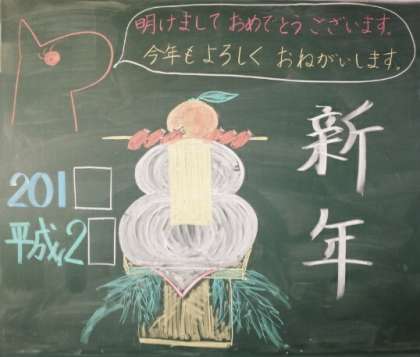 明けまして おめでとう ございます。
今年も よろしく おねがいします。
新年
201□
平成2□